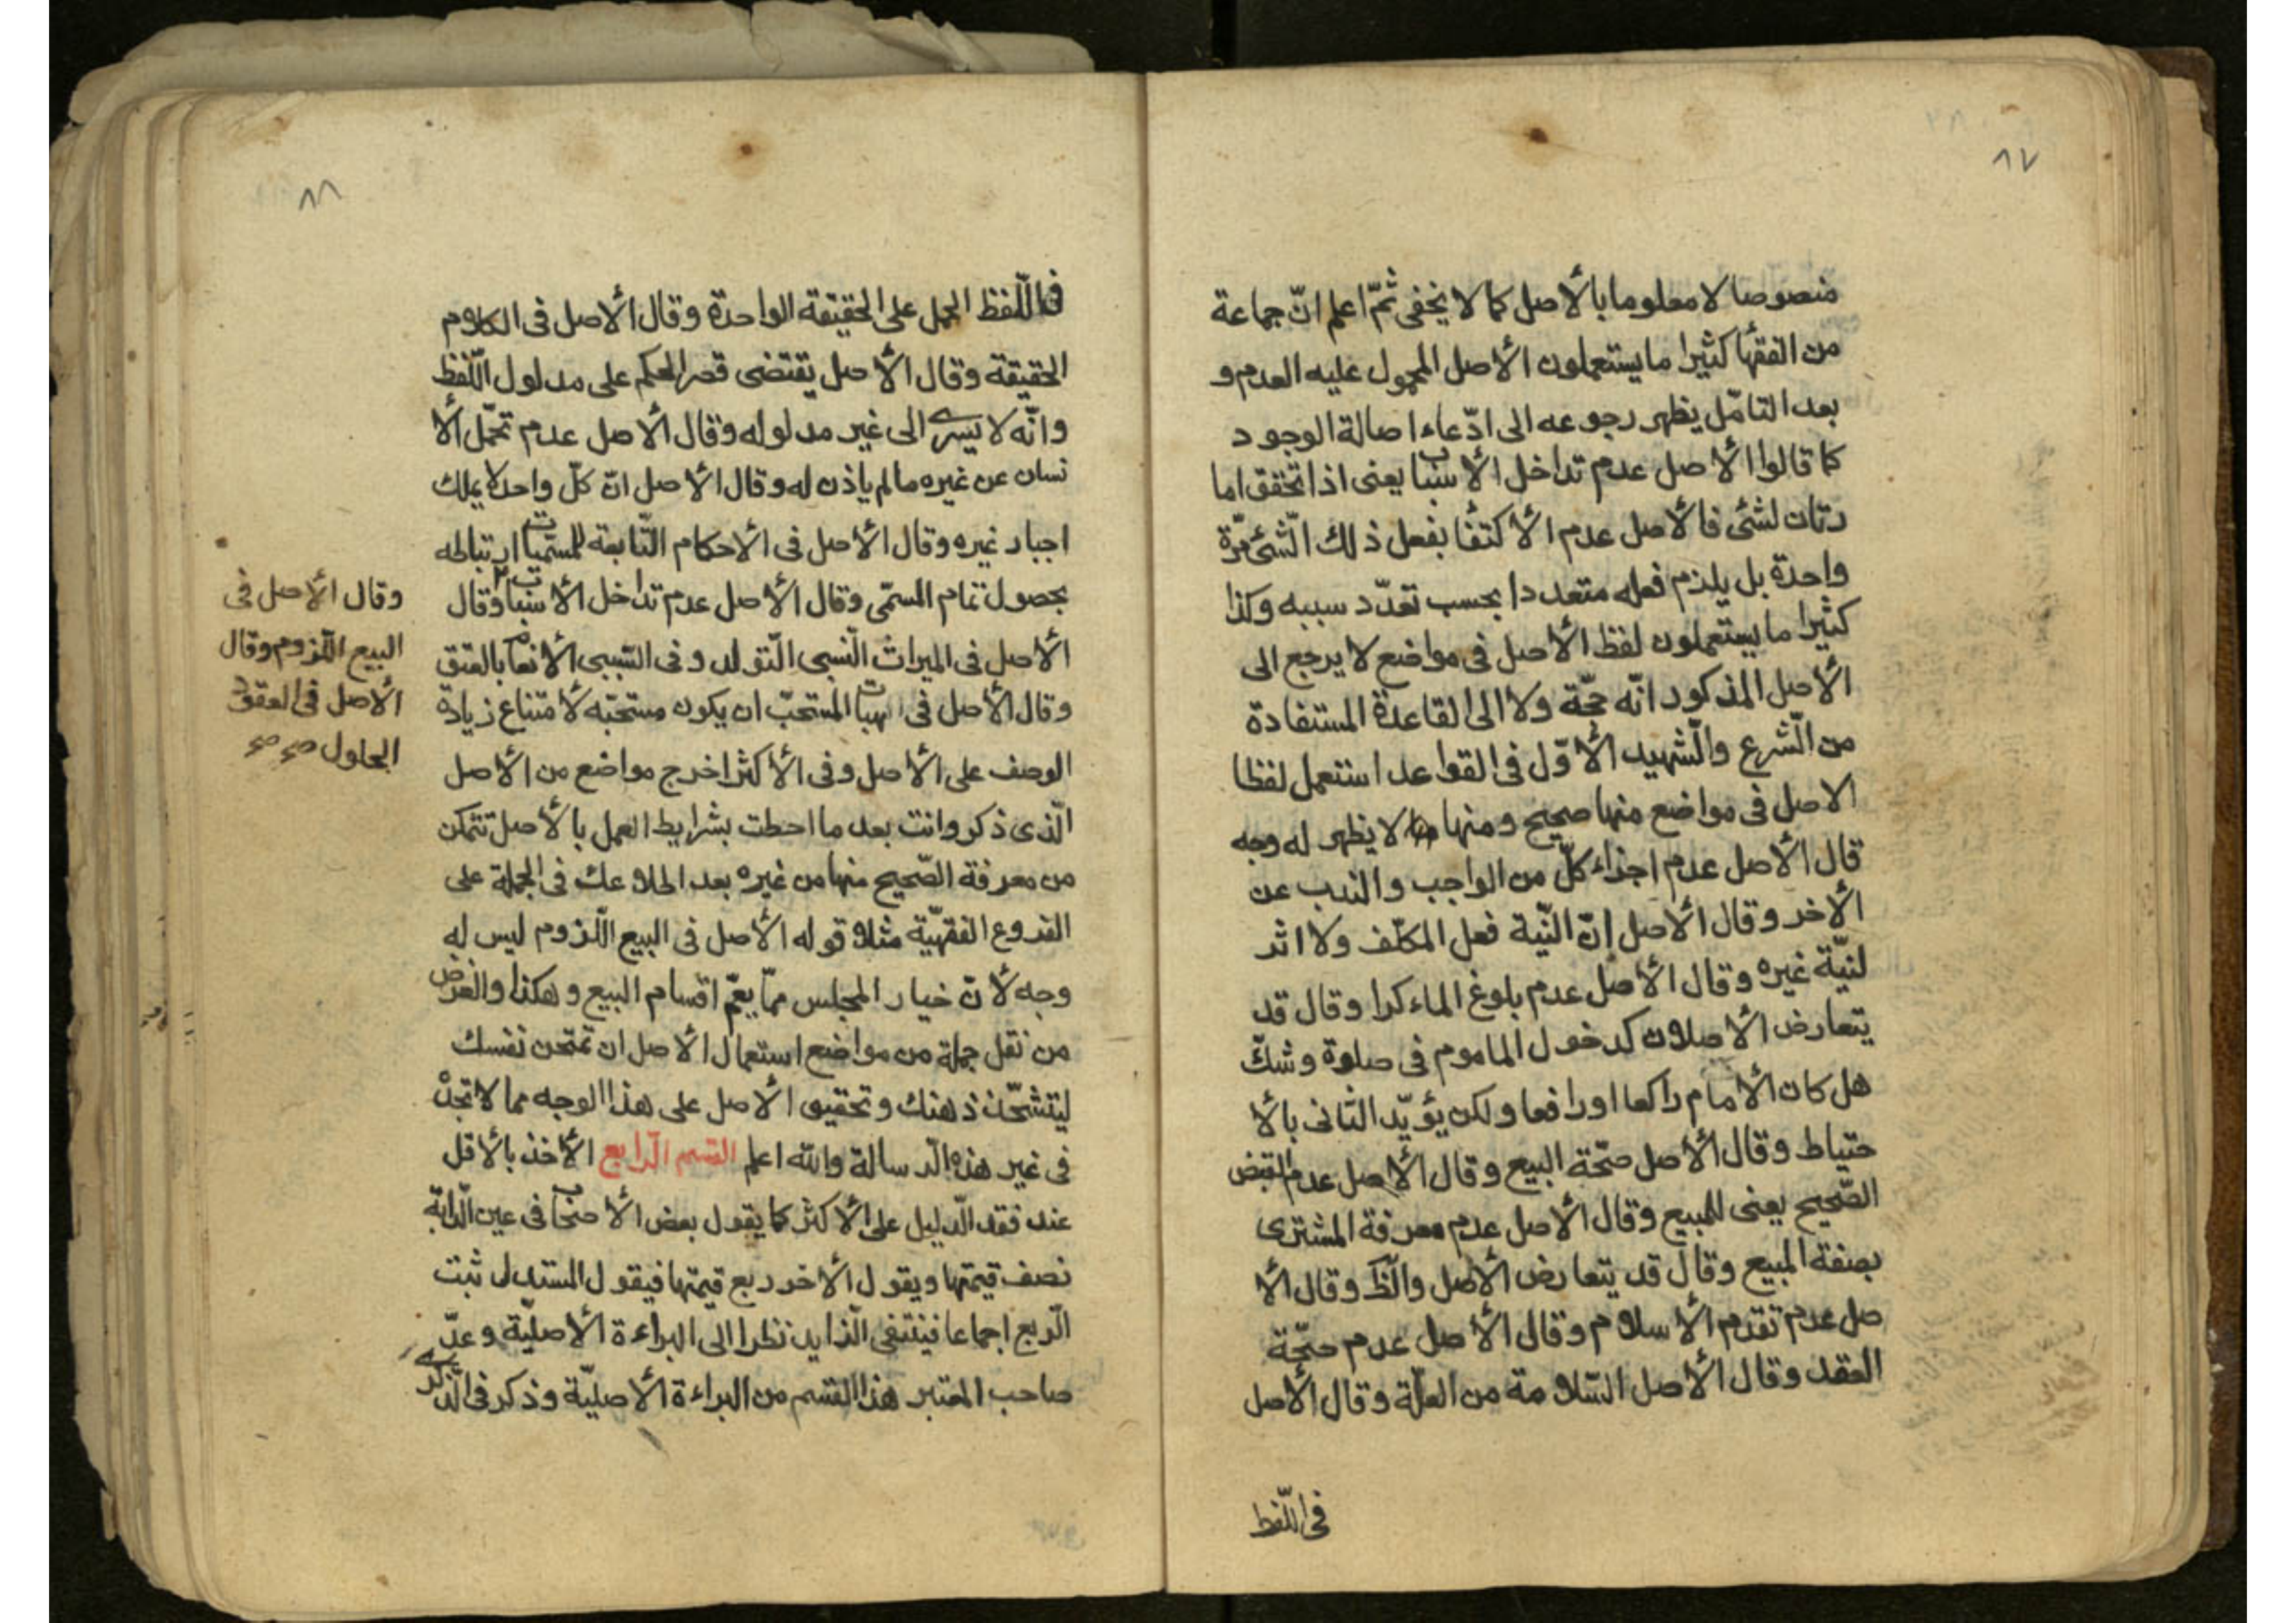 ٨٧
منصوصا لا معلوما بالأصل كما لا يخفى ثمّ اعلم انّ جماعة
من الفقها كثيرا ما يستعملون الأصل المحمول عليه العدم و
بعد التامّل يظهر رجوعه الى ادّعاء اصالة الوجود
كما قالوا الأصل عدم تداخل الأسباب يعنى اذا تحقق اما
رتان لشئ فالأصل عدم الأكتفا بفعل ذلك الشّئ مرّة
واحدة بل يلزم فعله متعددا بحسب تعدّد سببه وكذا
كثيرا ما يستعملون لفظ الأصل فى مواضع لا يرجع الى
الأصل المذكور انّه حجّة ولا الى القاعدة المستفادة
من الشّرع والشّهيد الأوّل فى القواعد استعمل لفظا
الاصل فى مواضع منها صحيح ومنها لا يظهر له وجه
قال الأصل عدم اجزاء كلّ من الواجب والندب عن
الأخر وقال الأصل إنّ النّية فعل المكلّف ولا اثر
لنيّة غيره وقال الأصل عدم بلوغ الماء كرا وقال قد
يتعارض الأصلان كدخول الماموم فى صلوة وشكّ
هل كان الأمام راكعا او رافعا ولكن يؤيّد الثانى بالأ
حتياط وقال الأصل صحّة البيع وقال الأصل عدم القبض
الصّحيح يعنى للمبيع وقال الأصل عدم معرفة المشترى
بصفة المبيع وقال قد يتعارض الأصل والظّ وقال الأ
صل عدم تقدّم الأسلام وقال الأصل عدم صحّة
العقد وقال الأصل السّلامة من العلّة وقال الأصل
فى اللّفظ
٨٨
فى اللّفظ الحمل على الحقيقة الواحدة وقال الأصل فى الكلام
الحقيقة وقال الأصل يقتضى قصر الحكم على مدلول اللّفظ
وانّه لا يسرى الى غير مدلوله وقال الأصل عدم تحمّل الأ
نسان عن غيره ما لم ياذن له وقال الأصل انّ كلّ واحد لا يملك
اجبار غيره وقال الأصل فى الأحكام التّابعة لمسمّيات ارتباطه
بحصول تمام المسمّى وقال الأصل عدم تداخل الأسباب وقال
الأصل فى الميراث النّسبى التّولد و فى السّببى الأنعام بالعتق
وقال الأصل فى الهيات المستحبّ ان يكون مستحبّه لأمتناع زيادة
الوصف على الأصل وفى الأكثر اخرج مواضع من الأصل
الّذى ذكر وانت بعد ما احطت بشرايط العمل بالأصل تتمكن
من معرفة الصّحيح منها من غيره بعد اطلاعك فى الجملة على
الفروع الفقهيّة مثلا قوله الأصل فى البيع اللّزوم ليس له
وجه لأنّ خيار المجلس ممّا يعمّ اقسام البيع وهكذا والغرض
من نقل جملة من مواضع استعمال الأصل ان تمتحن نفسك
ليتشحّذ ذهنك وتحقيق الأصل على هذا الوجه مما لا تجدْ
فى غير هذه الرّسالة والله اعلم القسم الرّابع الأخذ بالأقل
عند فقد الدّليل على الأكثر كما يقول بعض الأصحاب فى عين الدّابّة
نصف قيمتها ويقول الأخر ربع قيمتها فيقول المستدل ثبت
الرّبع اجماعا فينتفى الزّايد نظرا الى البراءة الأصليّة وعدّ
صاحب المعتبر هذا القسم من البراءة الأصليّة وذكر فى الذّكرى
وقال الأصل فى
البيع اللّزوم وقال
الأصل فى العقود
الحلول صح صح